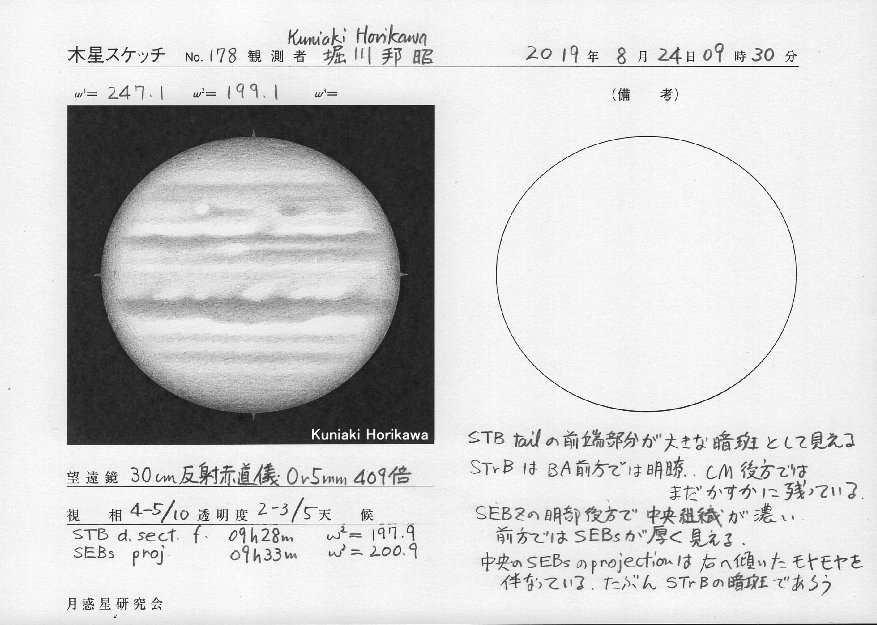 Kuniaki Horikawa
木星スケッチ No. 178 観測者 堀川邦昭 2019年 8月 24日 09時 30分
ω¹= 247.1 ω²= 199.1 ω³=
(備 考)
Kuniaki Horikawa
STB tailの前端部分が大きな暗斑として見える
STrBはBA前方では明瞭. CM後方では
まだかすかに残っている.
SEBZの明部後方で中央組織が濃い
前方ではSEBsが厚く見える.
中央のSEBsのprojectionは右へ傾いたモヤモヤを
伴なっている. たぶんSTrBの暗斑であろう
望遠鏡 30cm反射赤道儀 Or5mm 409倍
視 相 4-5/10 透明度 2-3/5 天 候
STB d. sect. f. 09h28m ω²=197.9
SEBs proj. 09h33m ω²=200.9
月惑星研究会